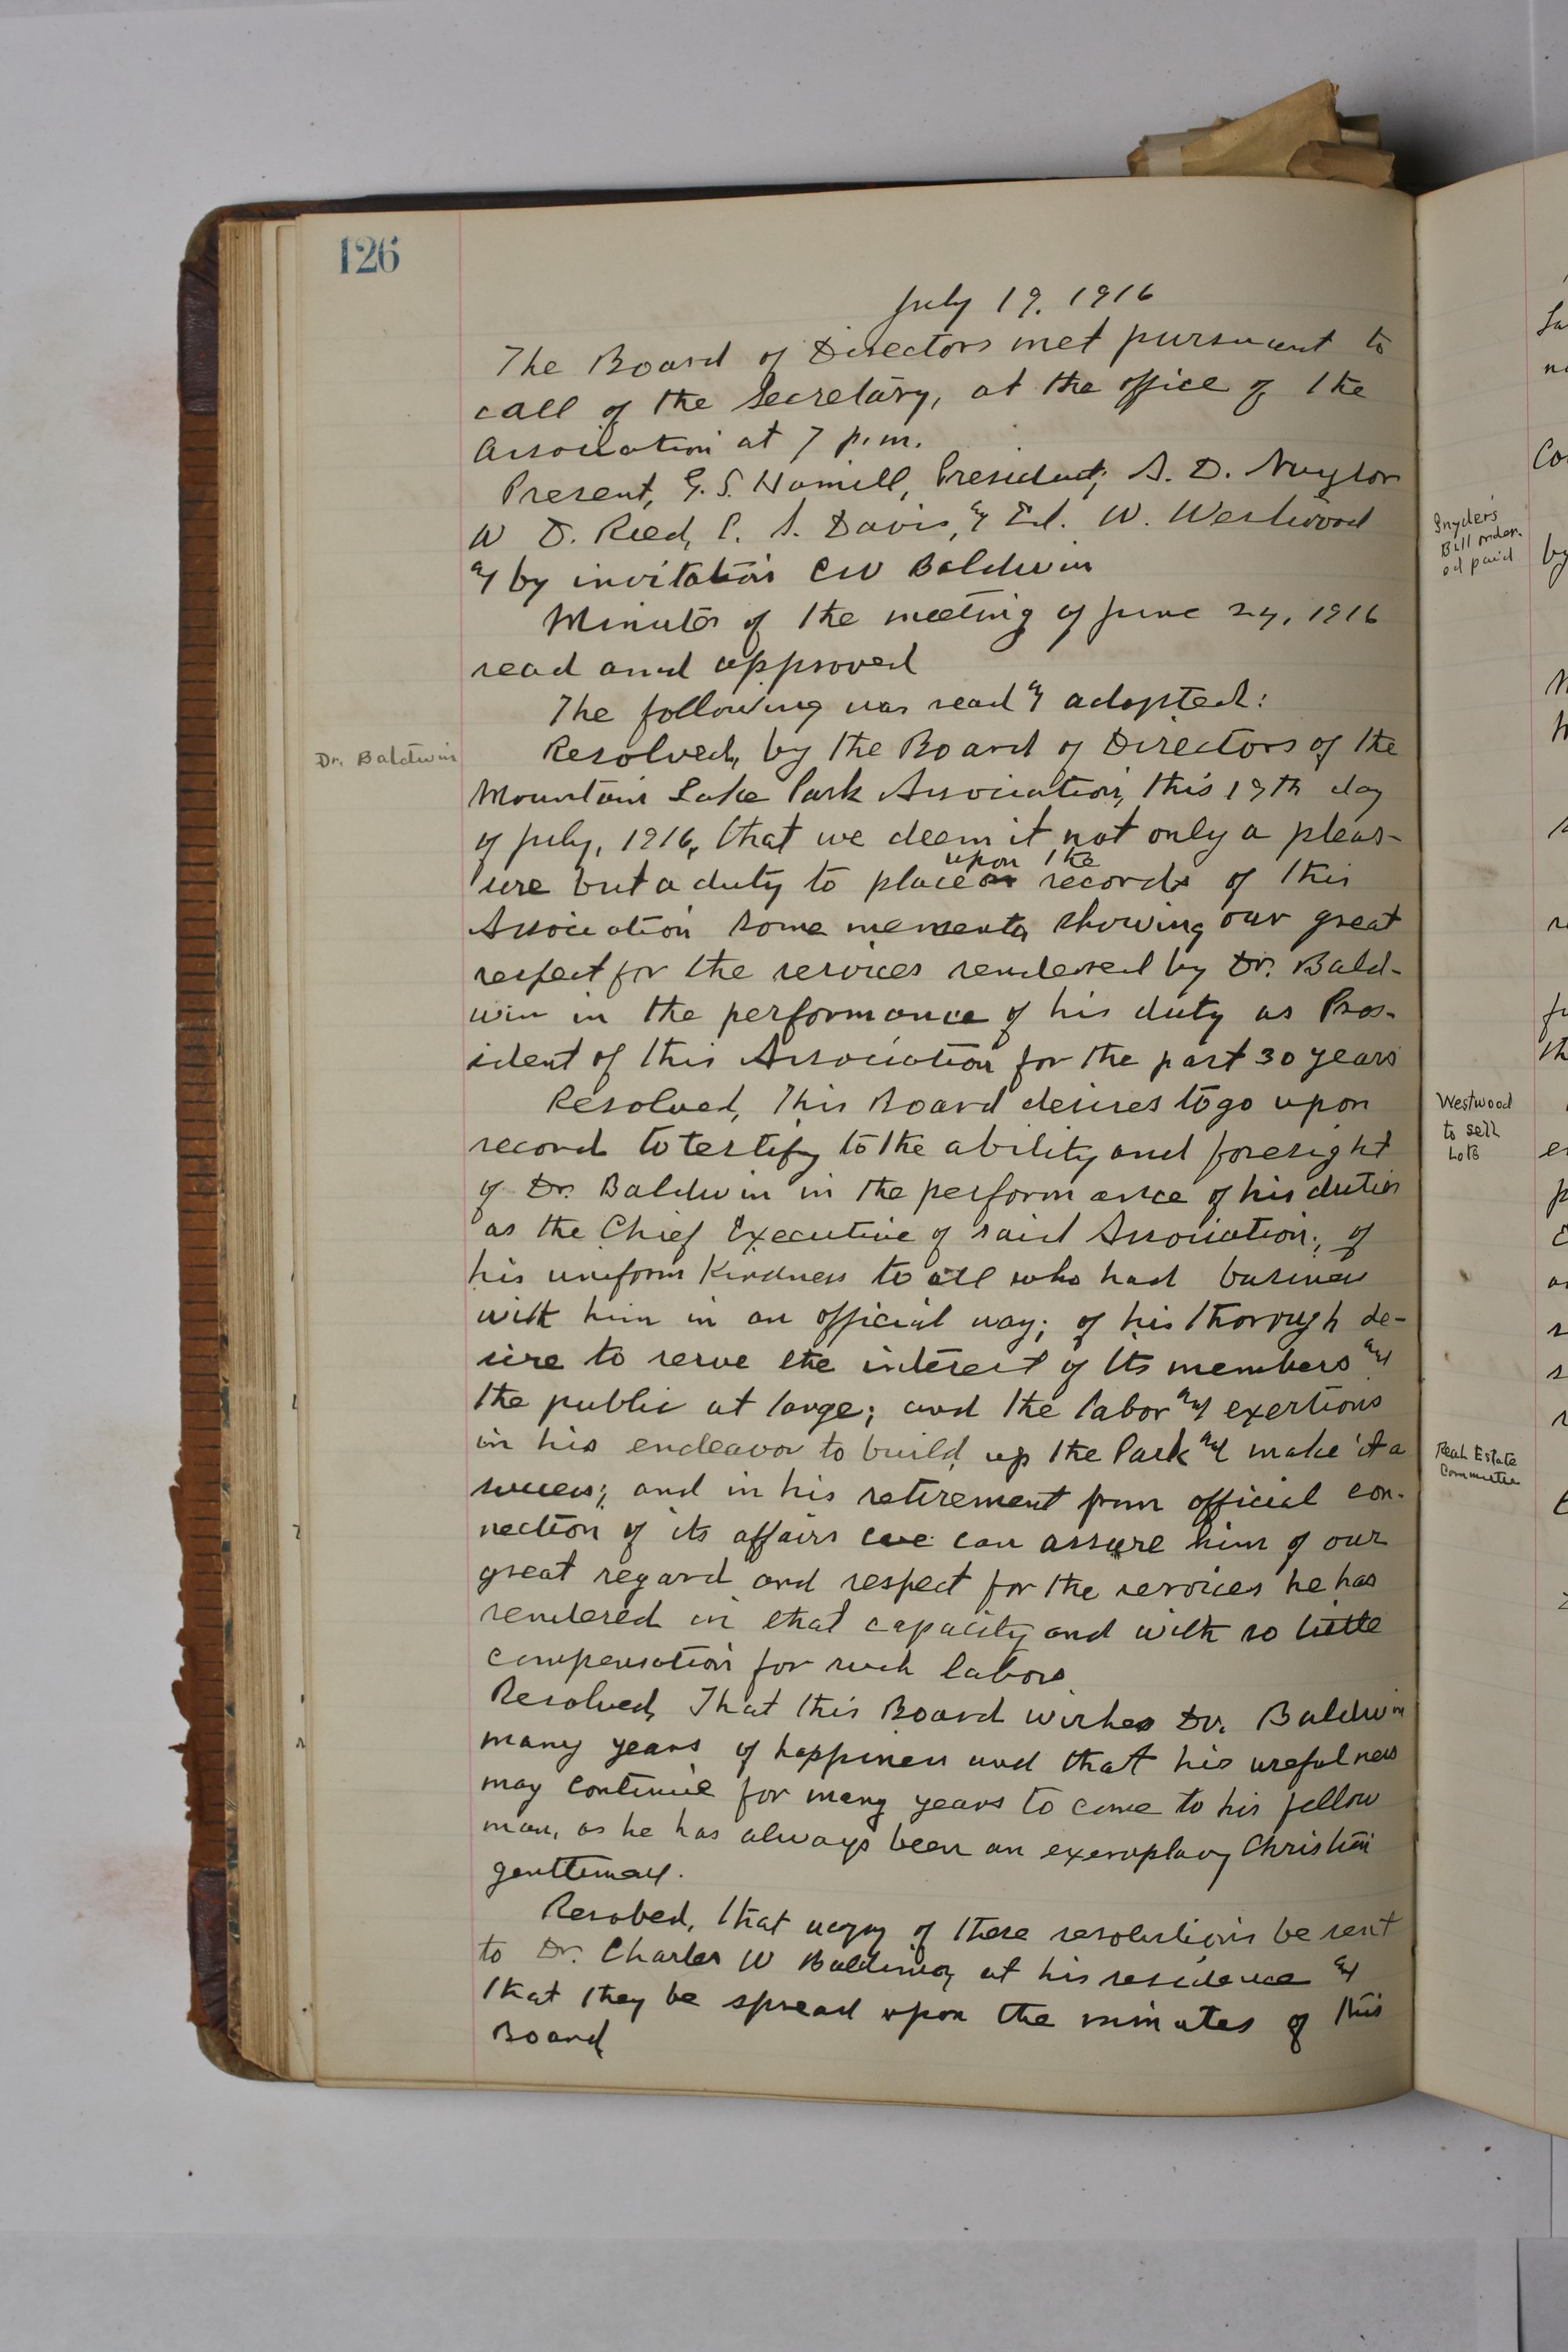 126
July 19, 1916
The Board of Directors met pursuant to
call of the Secretary, at the office of the
Association at 7 p.m.
Present, G. S. Hamill, President; A. D. Naylor
W D. Reed, C. S. Davis, & Ed. W. Westwood
& by invitation CW Baldwin
Minutes of the meeting of June 24, 1916
read and approved
The following was read & adopted:
Dr. Baldwin
Resolved, by the Board of Directors of the
Mountain Lake Park Association, this 19th day
of July, 1916, that we deem it not only a pleas-
ure but a duty to place upon the records of this
Association some memento showing our great
respect for the services rendered by Dr. Bald-
win in the performance of his duty as Pres-
ident of this Association for the past 30 years
Resolved, This Board desires to go upon
record to testify to the ability and foresight
of Dr. Baldwin in the performance of his duties
as the Chief Executive of said Association; of
his uniform kindness to all who had business
with him in an official way; of his thorough de-
sire to serve the interest of its members and
the public at large; and the labor and exertions
in his endeavor to build up the Park and make it a
success; and in his retirement from official con-
nection of its affairs we can assure him of our
great regard and respect for the services he has
rendered in that capacity and with so little
compensation for such labors
Resolved, That this Board wishes Dr. Baldwin
many years of happiness and that his usefulness
may continue for many years to come to his fellow
man, as he has always been an exemplary Christian
gentleman.
Resolved, that a copy of these resolutions be sent
to Dr. Charles W Baldwin, at his residence &
that they be spread upon the minutes of this
Board
Snyder's
Bill order-
ed paid
Westwood
to sell
Lots
Real Estate
Committee